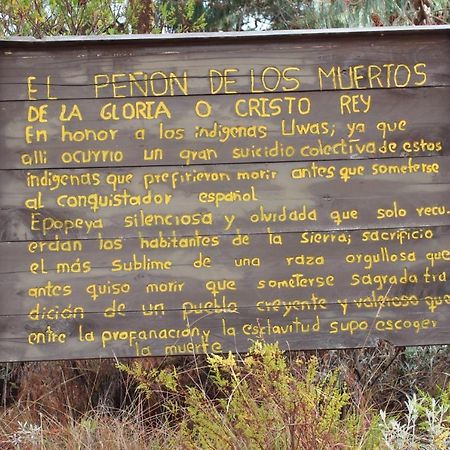 EL PEÑON DE LOS MUERTOS
DE LA GLORIA O CRISTO REY
En honor a los indigenas Uwas; ya que
alli ocurrio un gran suicidio colectiva de estos
indigenas que prefirieron morir antes que someterse
al conquistador español
Epopeya silenciosa y olvidada que solo recu.
erdan los habitantes de la sierra; sacrificio
el más sublime de una raza orgullosa que
antes quiso morir que someterse sagrada tra
dición de un pueblo creyente y valeroso que
entre la profanacion y la esclavitud supo escoger
la muerte